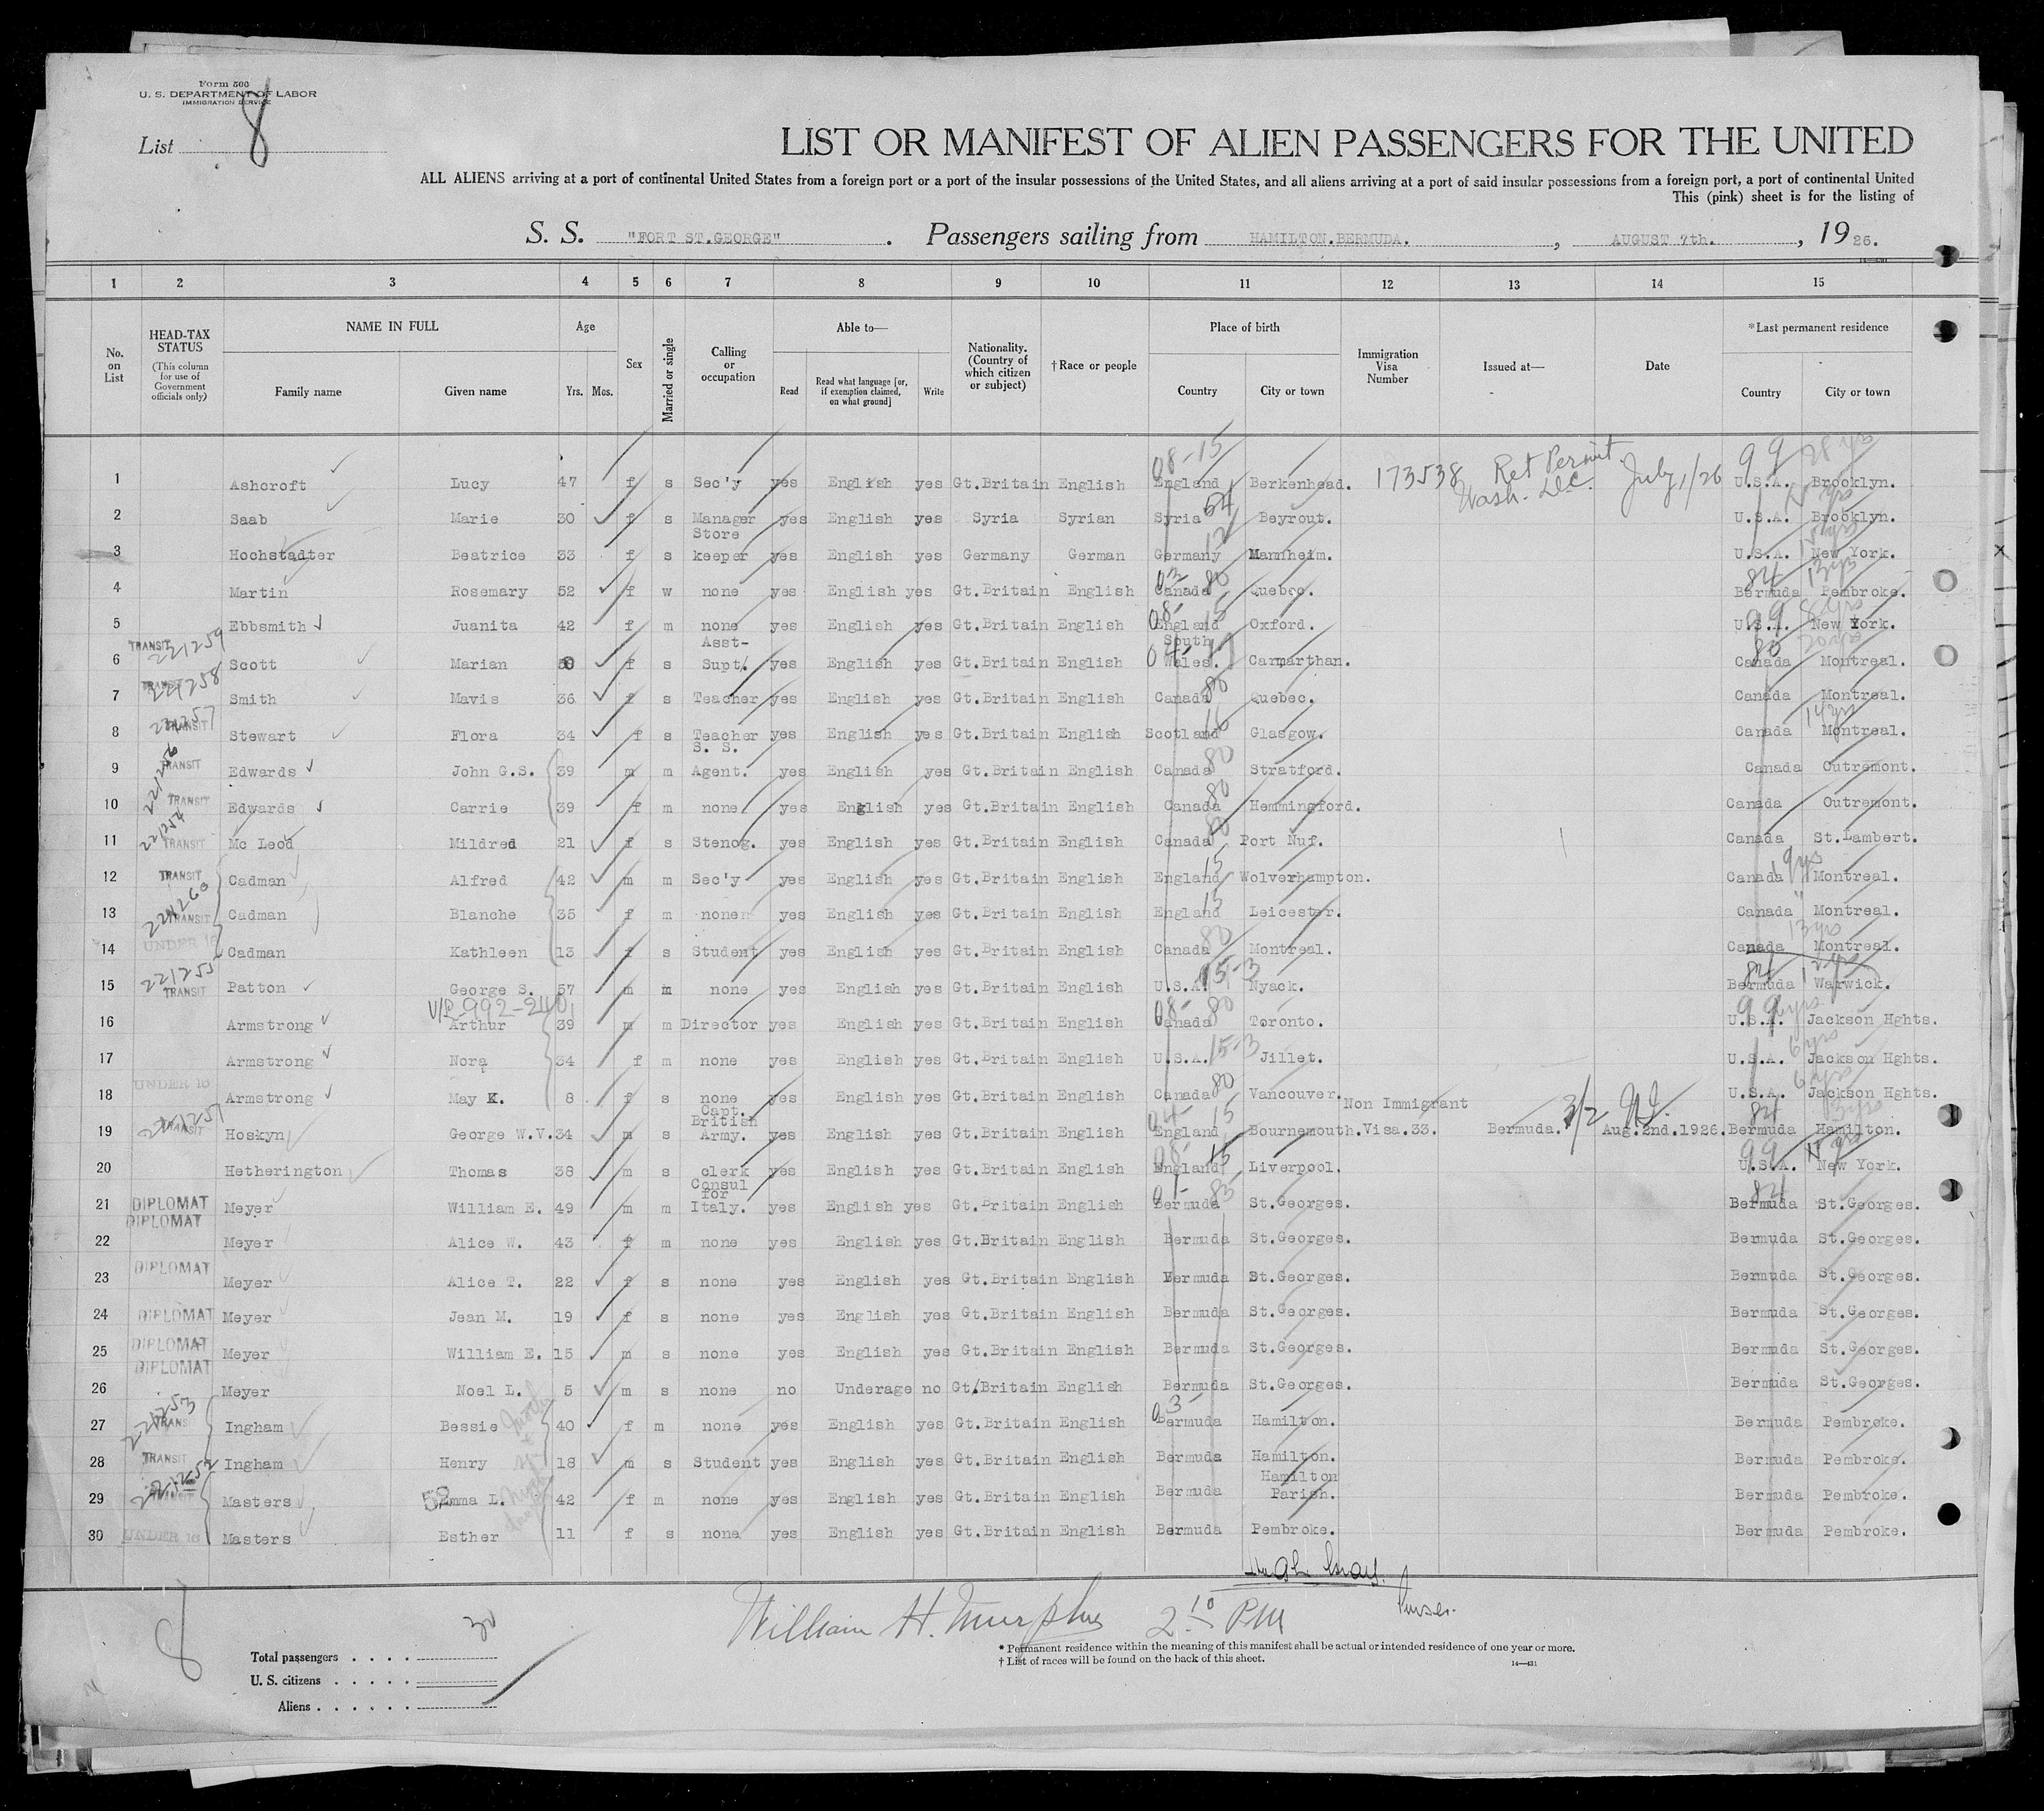 Form 500
U. S. DEPARTMENT OF LABOR
IMMIGRATION SERVICE
List 8
LIST OR MANIFEST OF ALIEN PASSENGERS FOR THE UNITED
ALL ALIENS arriving at a port of continental United States from a foreign port or a port of the insular possessions of the United States, and all aliens arriving at a port of said insular possessions from a foreign port, a port of continental United
This (pink) sheet is for the listing of
S. S. "FORT ST.GEORGE" . Passengers sailing from HAMILTON.BERMUDA. , AUGUST 7th. , 1926.
1 2 3 4 5 6 7 8 9 10 11 12 13 14 15
No. on List HEAD-TAX STATUS (This column for use of Government officials only) NAME IN FULL Family name Given name Age Yrs. Mos. Sex Married or single Calling or occupation Able to— Read Read what language [or, if exemption claimed, on what ground] Write Nationality. (Country of which citizen or subject) † Race or people Place of birth Country City or town Immigration Visa Number Issued at— Date * Last permanent residence Country City or town
1 Ashcroft Lucy 47 f s Sec'y yes English yes Gt.Britain English 08-15 England Berkenhead. 173538 Ret Permit Wash. D.C. July 1/26 99 28 yrs U.S.A. Brooklyn.
2 Saab Marie 30 f s Manager yes English yes Syria Syrian Syria 54 Beyrout. U.S.A. Brooklyn.
3 Hochstadter Beatrice 33 f s Store keeper yes English yes Germany German Germany 12 Mannheim. U.S.A. New York.
4 Martin Rosemary 52 f w none yes English yes Gt.Britain English 03 80 Canada Quebec. 84 13yrs Bermuda Pembroke.
5 Ebbsmith Juanita 42 f m none yes English yes Gt.Britain English 08- 15 England Oxford. 99 8 yrs U.S.A. New York.
6 TRANSIT 221259 Scott Marian 50 f s Asst- Supt. yes English yes Gt.Britain English South Wales. Carmarthan. 80 20 yrs Canada Montreal.
7 TRANSIT 221258 Smith Mavis 36 f s Teacher yes English yes Gt.Britain English Canada 80 Quebec. Canada Montreal.
8 TRANSIT 221257 Stewart Flora 34 f s Teacher yes English yes Gt.Britain English Scotland 16 Glasgow. 14 yrs Canada Montreal.
9 TRANSIT Edwards John G.S. 39 m m S. S. Agent. yes English yes Gt.Britain English Canada 80 Stratford. Canada Outremont.
10 221256 TRANSIT Edwards Carrie 39 f m none yes English yes Gt.Britain English Canada 80 Hemmingford. Canada Outremont.
11 221254 TRANSIT Mc Leod Mildred 21 f s Stenog. yes English yes Gt.Britain English Canada 80 Port Nuf. Canada St.Lambert.
12 TRANSIT Cadman Alfred 42 m m Sec'y yes English yes Gt.Britain English England 15 Wolverhampton. 19 yrs Canada Montreal.
13 221260 TRANSIT Cadman Blanche 35 f m none yes English yes Gt.Britain English England 15 Leicester. " Canada Montreal.
14 UNDER 16 Cadman Kathleen 13 f s Student yes English yes Gt.Britain English Canada 80 Montreal. 13 yrs Canada Montreal.
15 221255 TRANSIT Patton George S. 57 m m none yes English yes Gt.Britain English U.S.A. 15-3 Nyack. 84 12 yrs Bermuda Warwick.
16 Armstrong V/L-992-240 Arthur 39 m m Director yes English yes Gt.Britain English 08- 80 Canada Toronto. 99 6 yrs U.S.A. Jackson Hghts.
17 Armstrong Nora 34 f m none yes English yes Gt.Britain English U.S.A. 15-3 Jillet. 6 yrs U.S.A. Jackson Hghts.
18 UNDER 16 Armstrong May K. 8 f s none yes English yes Gt.Britain English Canada 80 Vancouver. 6 yrs U.S.A. Jackson Hghts.
19 221251 TRANSIT Hoskyn George W.V. 34 m s Capt. British Army. yes English yes Gt.Britain English 04- 15 England Bournemouth. Non Immigrant Visa.33. Bermuda. 3/2 Aug.2nd.1926. 84 Bermuda Hamilton.
20 Hetherington Thomas 38 m s clerk yes English yes Gt.Britain English 08- 15 England Liverpool. 99 U.S.A. New York.
21 DIPLOMAT Meyer William E. 49 m m Consul for Italy. yes English yes Gt.Britain English 01- 85 Bermuda St.Georges. 84 Bermuda St.Georges.
22 DIPLOMAT Meyer Alice W. 43 f m none yes English yes Gt.Britain English Bermuda St.Georges. Bermuda St.Georges.
23 DIPLOMAT Meyer Alice T. 22 f s none yes English yes Gt.Britain English Bermuda St.Georges. Bermuda St.Georges.
24 DIPLOMAT Meyer Jean M. 19 f s none yes English yes Gt.Britain English Bermuda St.Georges. Bermuda St.Georges.
25 DIPLOMAT Meyer William E. 15 m s none yes English yes Gt.Britain English Bermuda St.Georges. Bermuda St.Georges.
26 DIPLOMAT Meyer Noel L. 5 m s none no Underage no Gt.Britain English Bermuda St.Georges. Bermuda St.Georges.
27 221253 TRANSIT Ingham Bessie 40 f m none yes English yes Gt.Britain English 03- Bermuda Hamilton. Bermuda Pembroke.
28 TRANSIT Ingham Henry 18 m s Student yes English yes Gt.Britain English Bermuda Hamilton. Bermuda Pembroke.
29 221252 TRANSIT Masters Emma L. 42 f m none yes English yes Gt.Britain English Bermuda Hamilton Parish. Bermuda Pembroke.
30 UNDER 16 Masters Esther 11 f s none yes English yes Gt.Britain English Bermuda Pembroke. Bermuda Pembroke.
8
William H. Murphy 2 10 PM
Purser.
Total passengers . . . . 30
U. S. citizens . . . . .
Aliens . . . . . .
* Permanent residence within the meaning of this manifest shall be actual or intended residence of one year or more.
† List of races will be found on the back of this sheet.
14—431